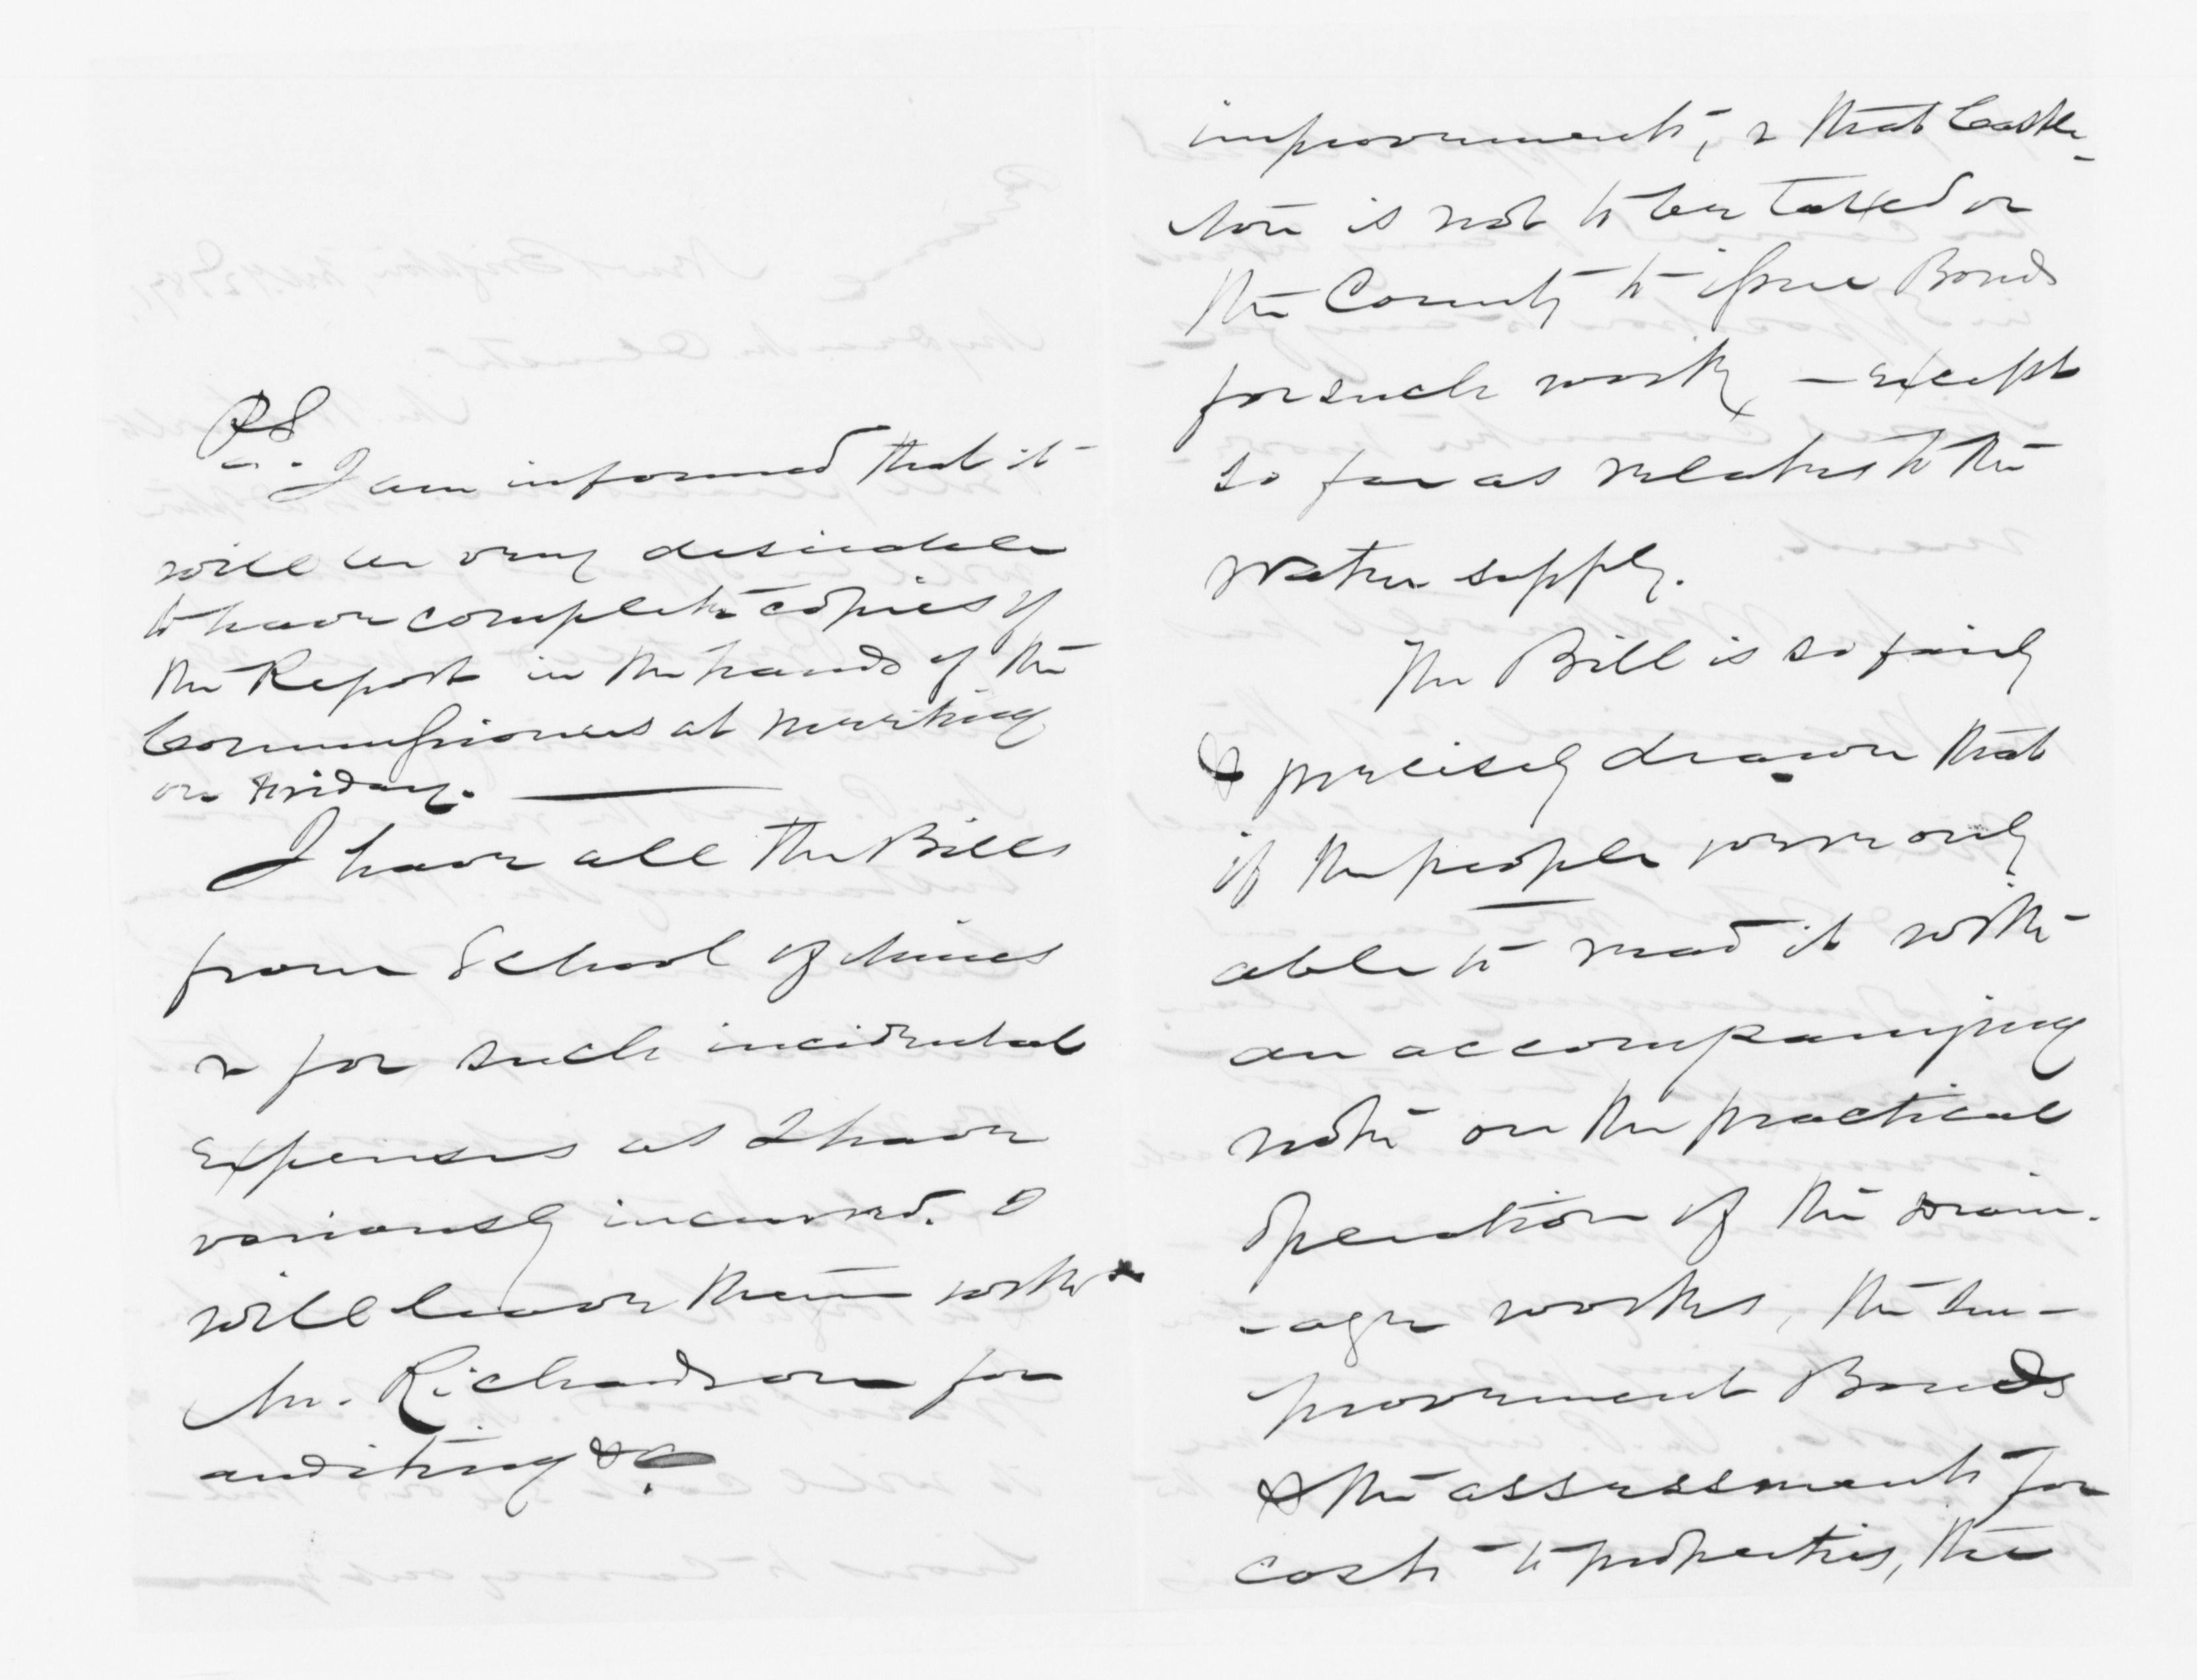 PS
I am informed that it
will be very desirable
to have complete copies of
the Report in the hands of the
Commissioners at meeting
on Friday.
I have all the Bills
from School of Mines
& for such incidental
expenses as I have
variously incurred. I
will leave them with
Mr. Richardson for
auditing &c.
improvements, & that Castle-
ton is not to be taxed or
the County to issue Bonds
for such work, - except
so far as relates to the
water supply.
The Bill is so fairly
& precisely drawn that
if the people were only
able to read it with
an accompanying
note on the practical
operation of the drain-
-age works, the Im-
provement Bonds
& the assessments for
costs to properties, the